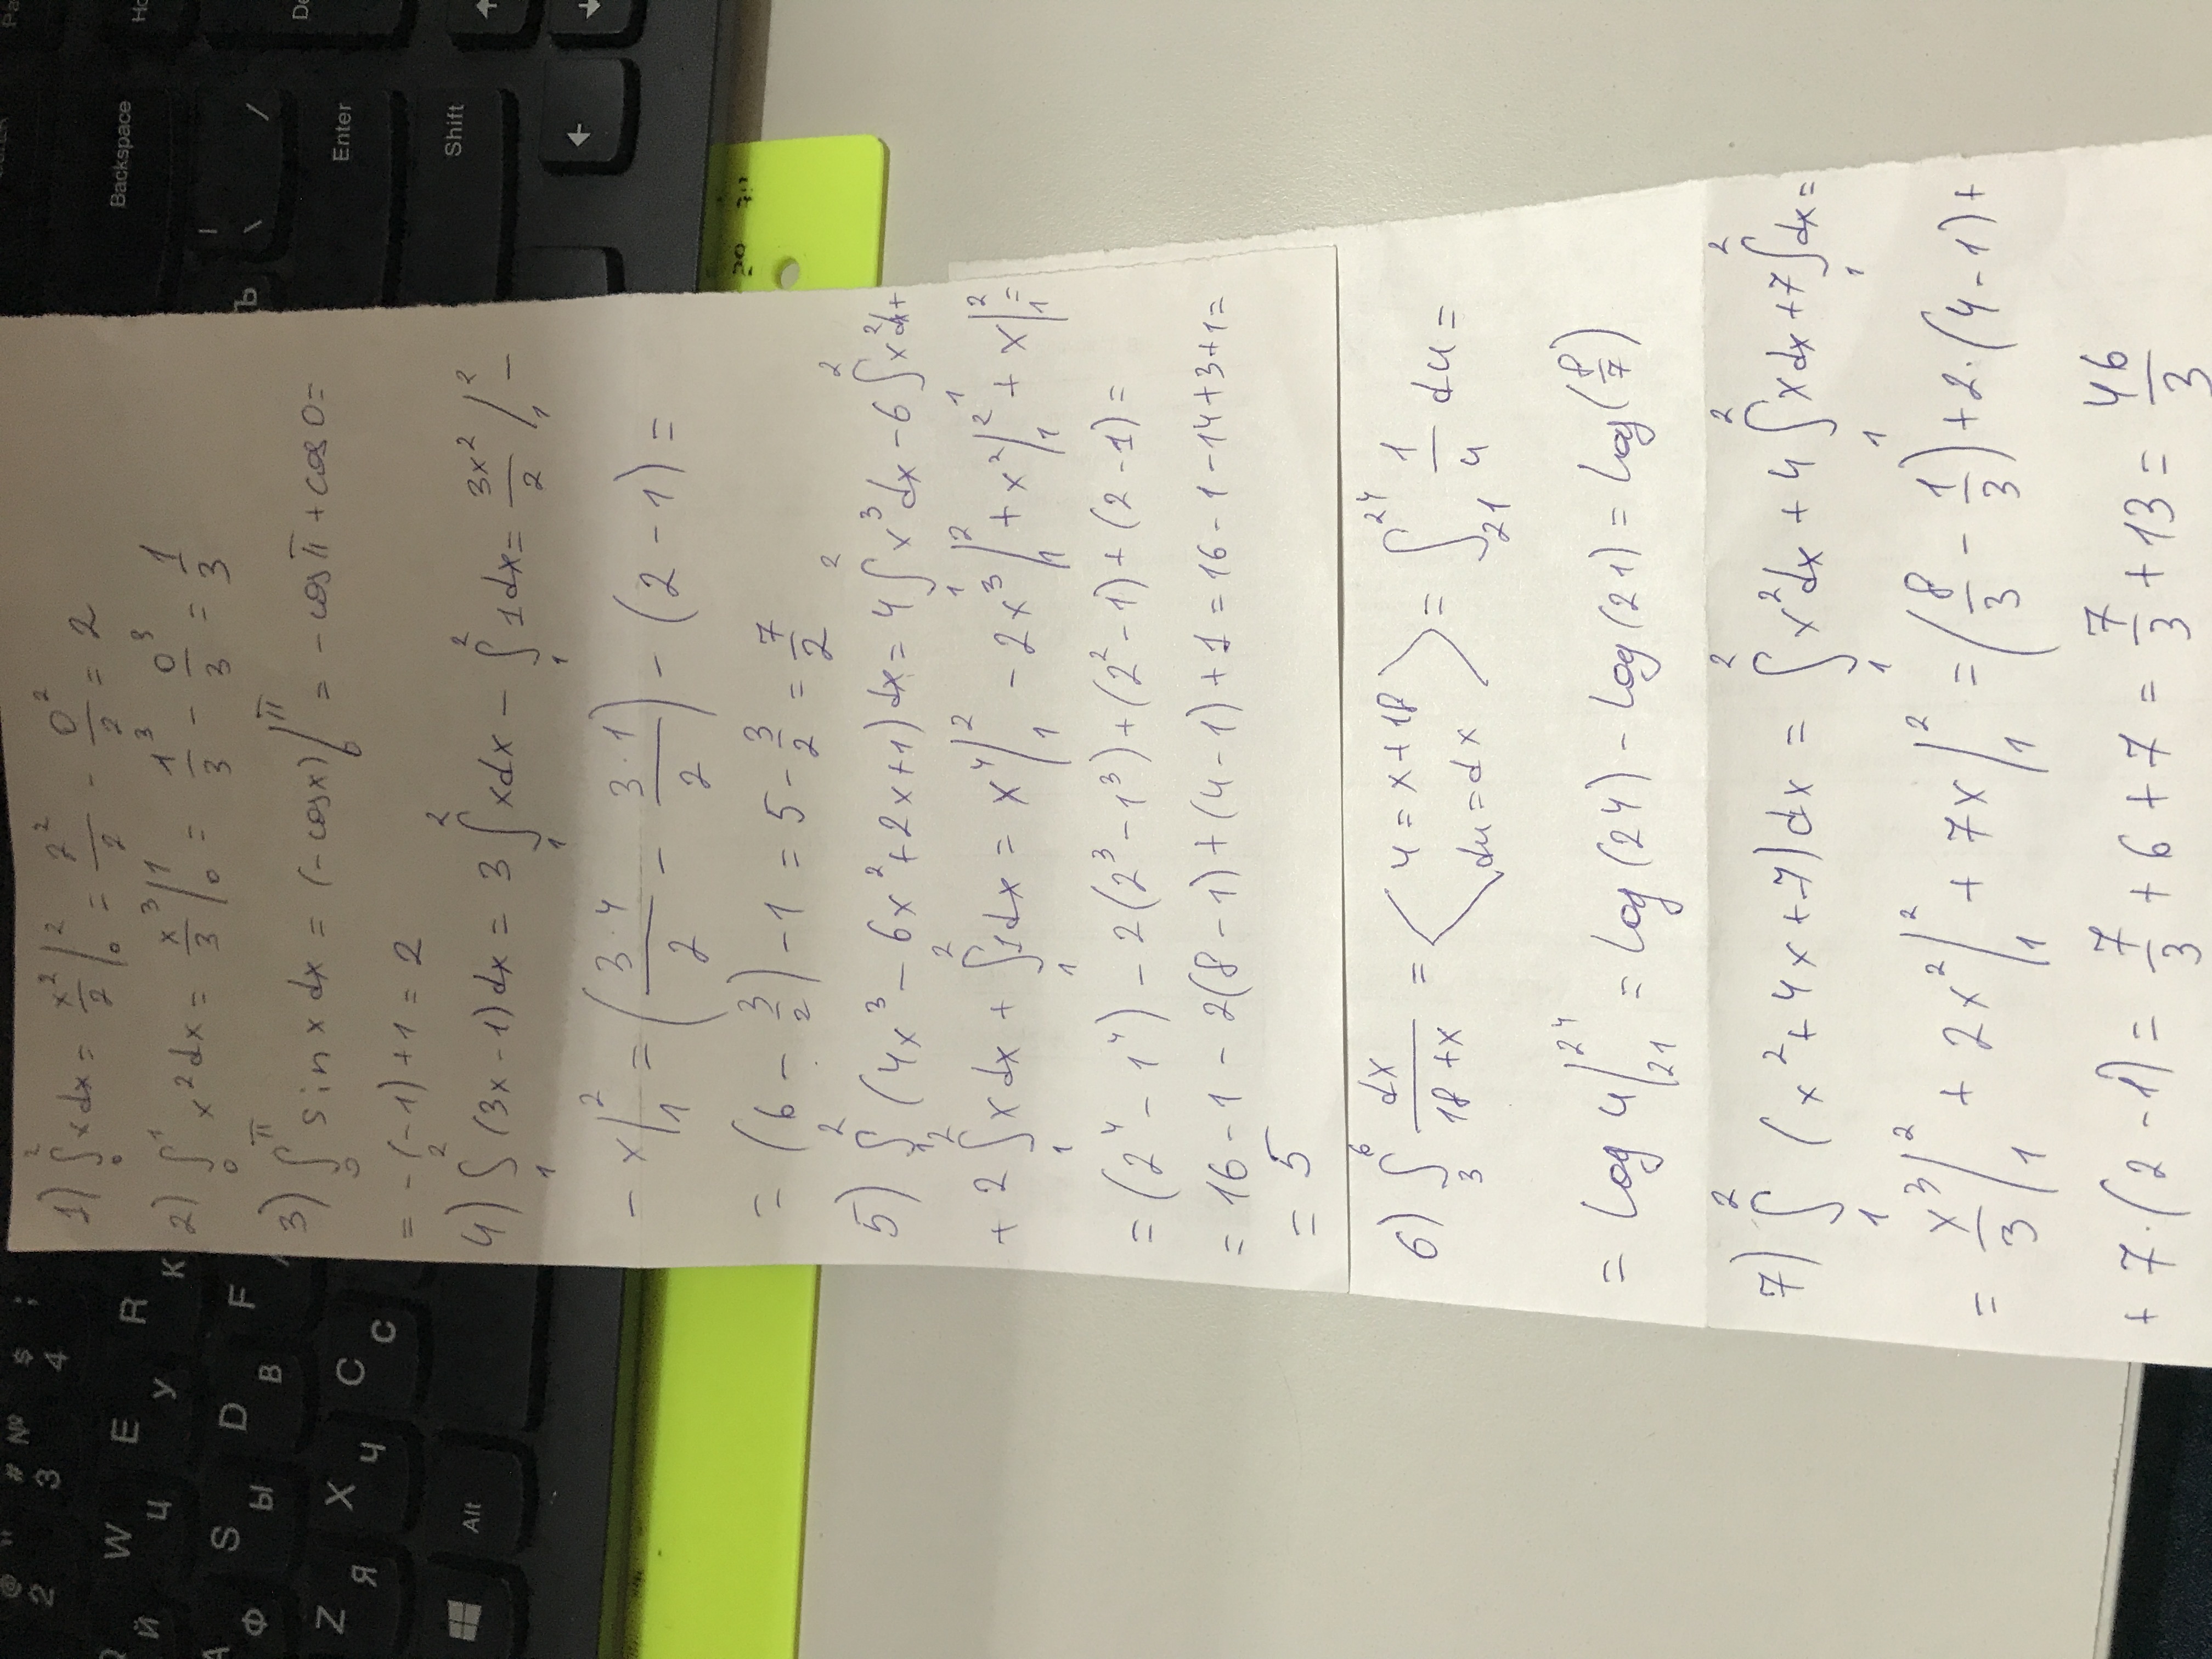 1) ∫₀² xdx = x²/2 |₀² = 2²/2 - 0²/2 = 2
2) ∫₀¹ x²dx = x³/3 |₀¹ = 1³/3 - 0³/3 = 1/3
3) ∫₀^π sin x dx = (-cosx) |₀^π = -cosπ + cos0 =
= -(-1)+1 = 2
4) ∫₁² (3x-1)dx = 3∫₁² xdx - ∫₁² 1dx = 3x²/2 |₁² -
- x |₁² = (3·4/2 - 3·1/2) - (2-1) =
= (6 - 3/2) - 1 = 5 - 3/2 = 7/2
5) ∫₁² (4x³ - 6x² + 2x + 1)dx = 4∫₁² x³dx - 6∫₁² x²dx +
+ 2∫₁² xdx + ∫₁² 1dx = x⁴ |₁² - 2x³ |₁² + x² |₁² + x |₁² =
= (2⁴ - 1⁴) - 2(2³ - 1³) + (2² - 1) + (2-1) =
= 16 - 1 - 2(8-1) + (4-1) + 1 = 16 - 1 - 14 + 3 + 1 =
= 5
6) ∫₃⁶ dx/18+x = < u = x+18 du = dx > = ∫₂₁²⁴ 1/u du =
= log u |₂₁²⁴ = log(24) - log(21) = log(8/7)
7) ∫₁² (x² + 4x + 7)dx = ∫₁² x²dx + 4∫₁² xdx + 7∫₁² dx =
= x³/3 |₁² + 2x² |₁² + 7x |₁² = (8/3 - 1/3) + 2·(4-1) +
+ 7·(2-1) = 7/3 + 6 + 7 = 7/3 + 13 = 46/3
Backspace
Enter
Shift
Alt
W Ц
E У
R К
S Ы
D В
F
Z Я
X Ч
C С
Й
Ф
Ъ
\ /
@ 2
# № 3
$ ; 4